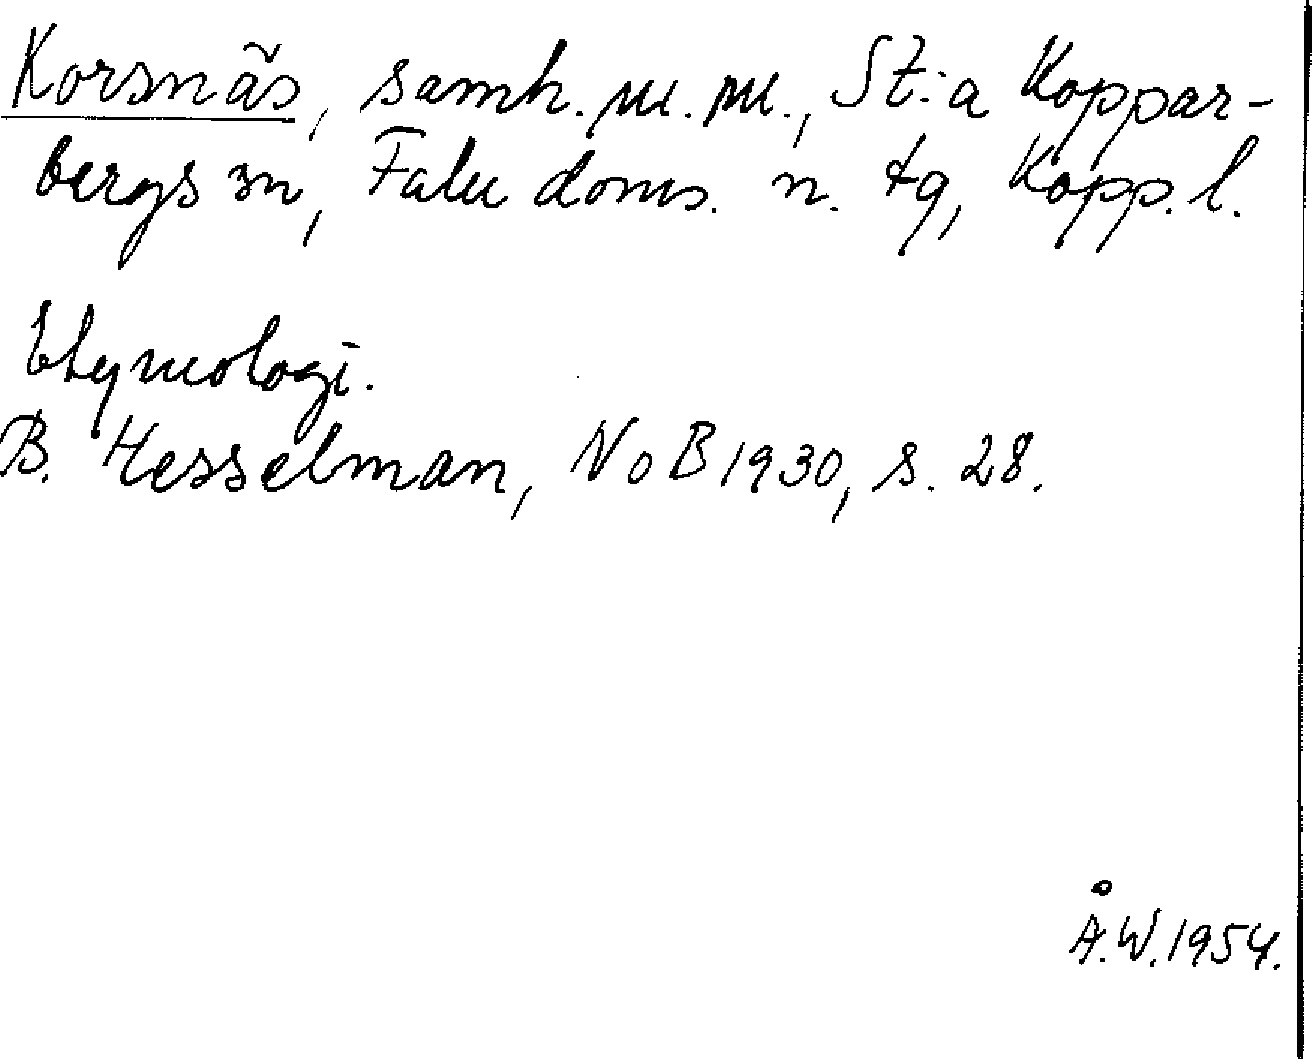 Korsnäs, samh. m. m., St:a Koppar-
bergs sn, Falu doms. n. tg, Kopp. l.
Etymologi.
B. Hesselman, NoB 1930, s. 28.
Å.W. 1954.